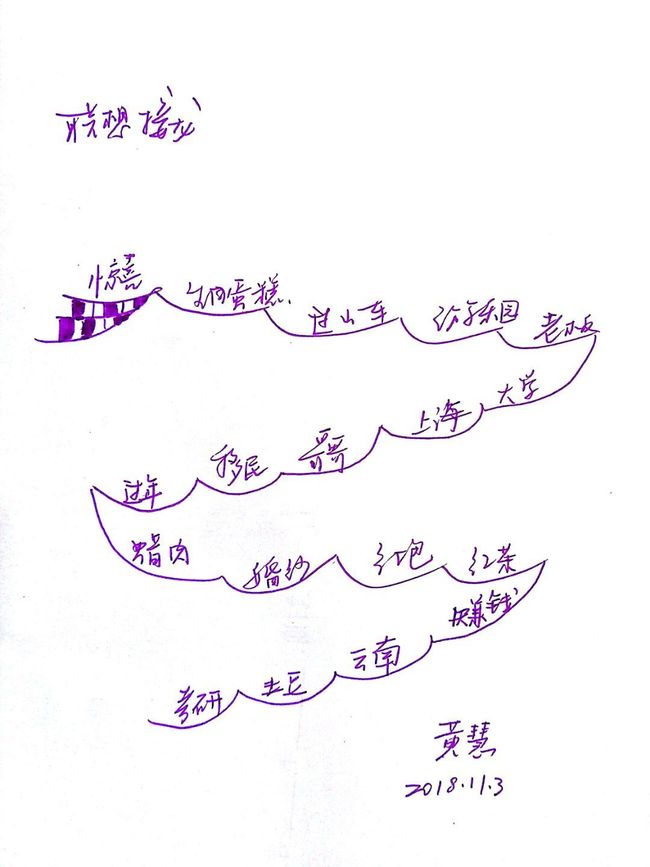 联想接龙
惊喜 生日蛋糕 过山车 游乐园 老板
过年 移民 哥哥 上海 大学
腊肉 婚纱 红包 红茶
考研 土豆 云南 赚钱
黄慧
2018.11.3